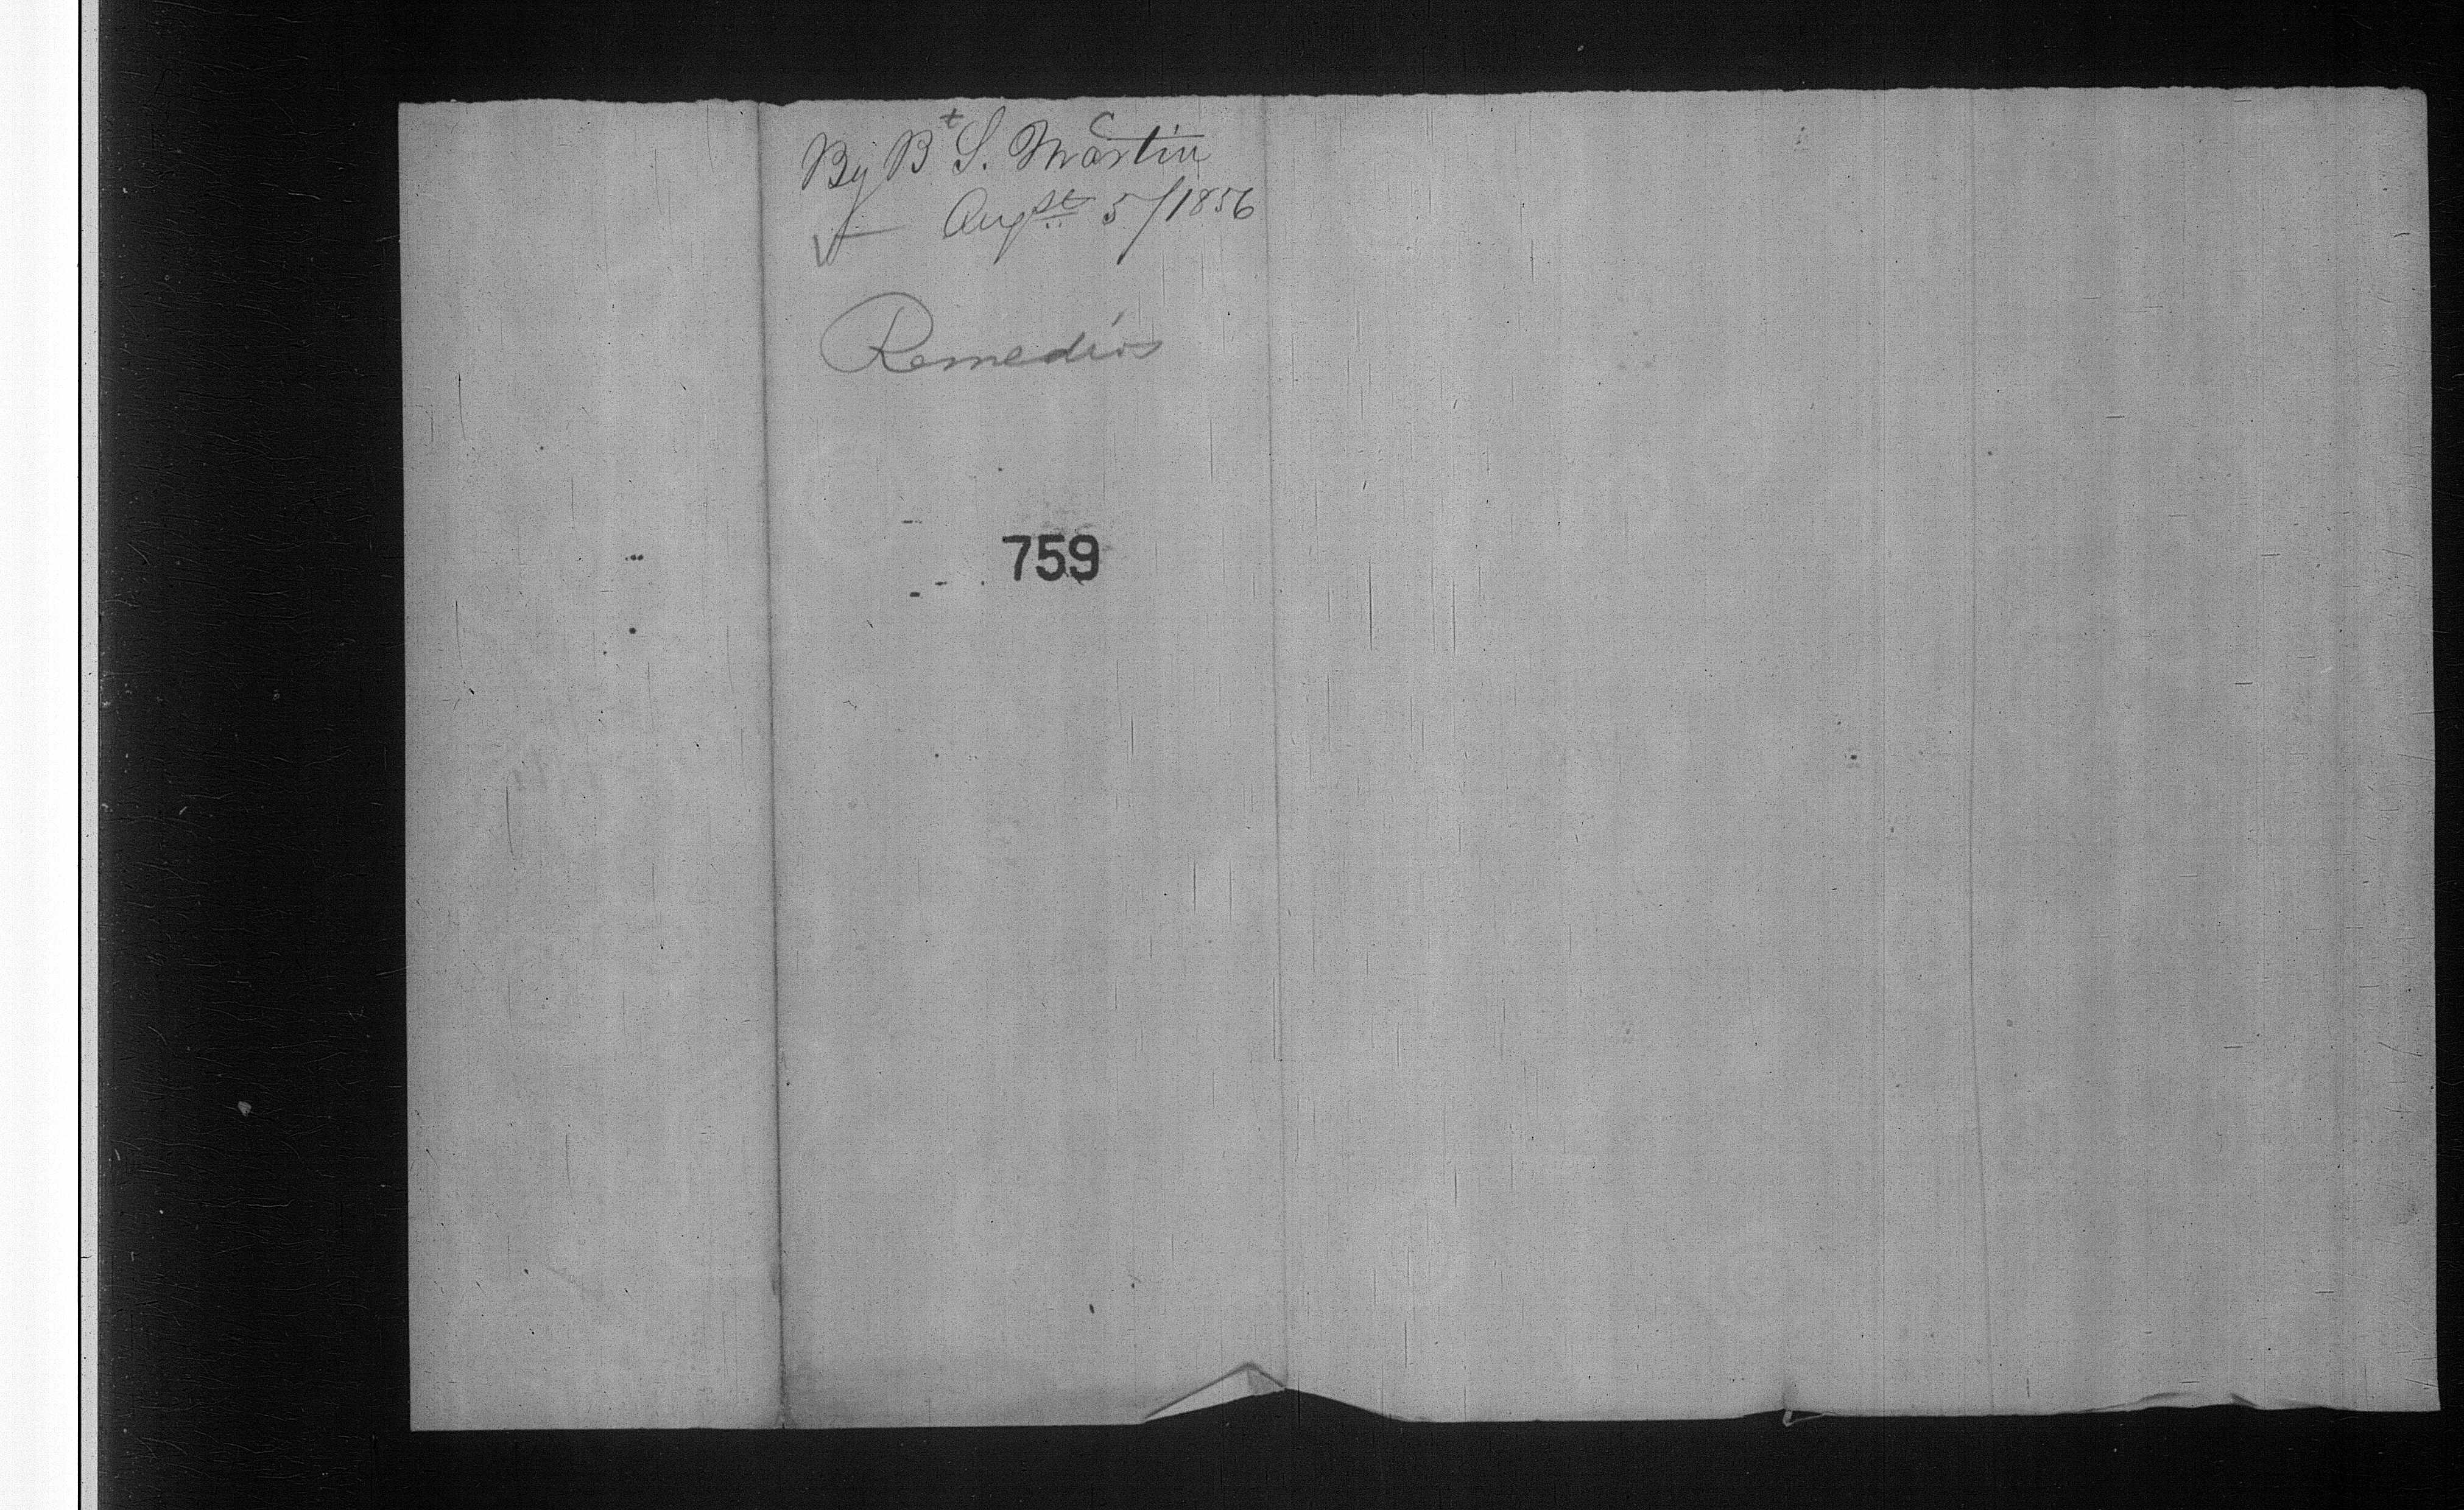 By Bt S. Martin
Augst 5/1856
Remedios
759